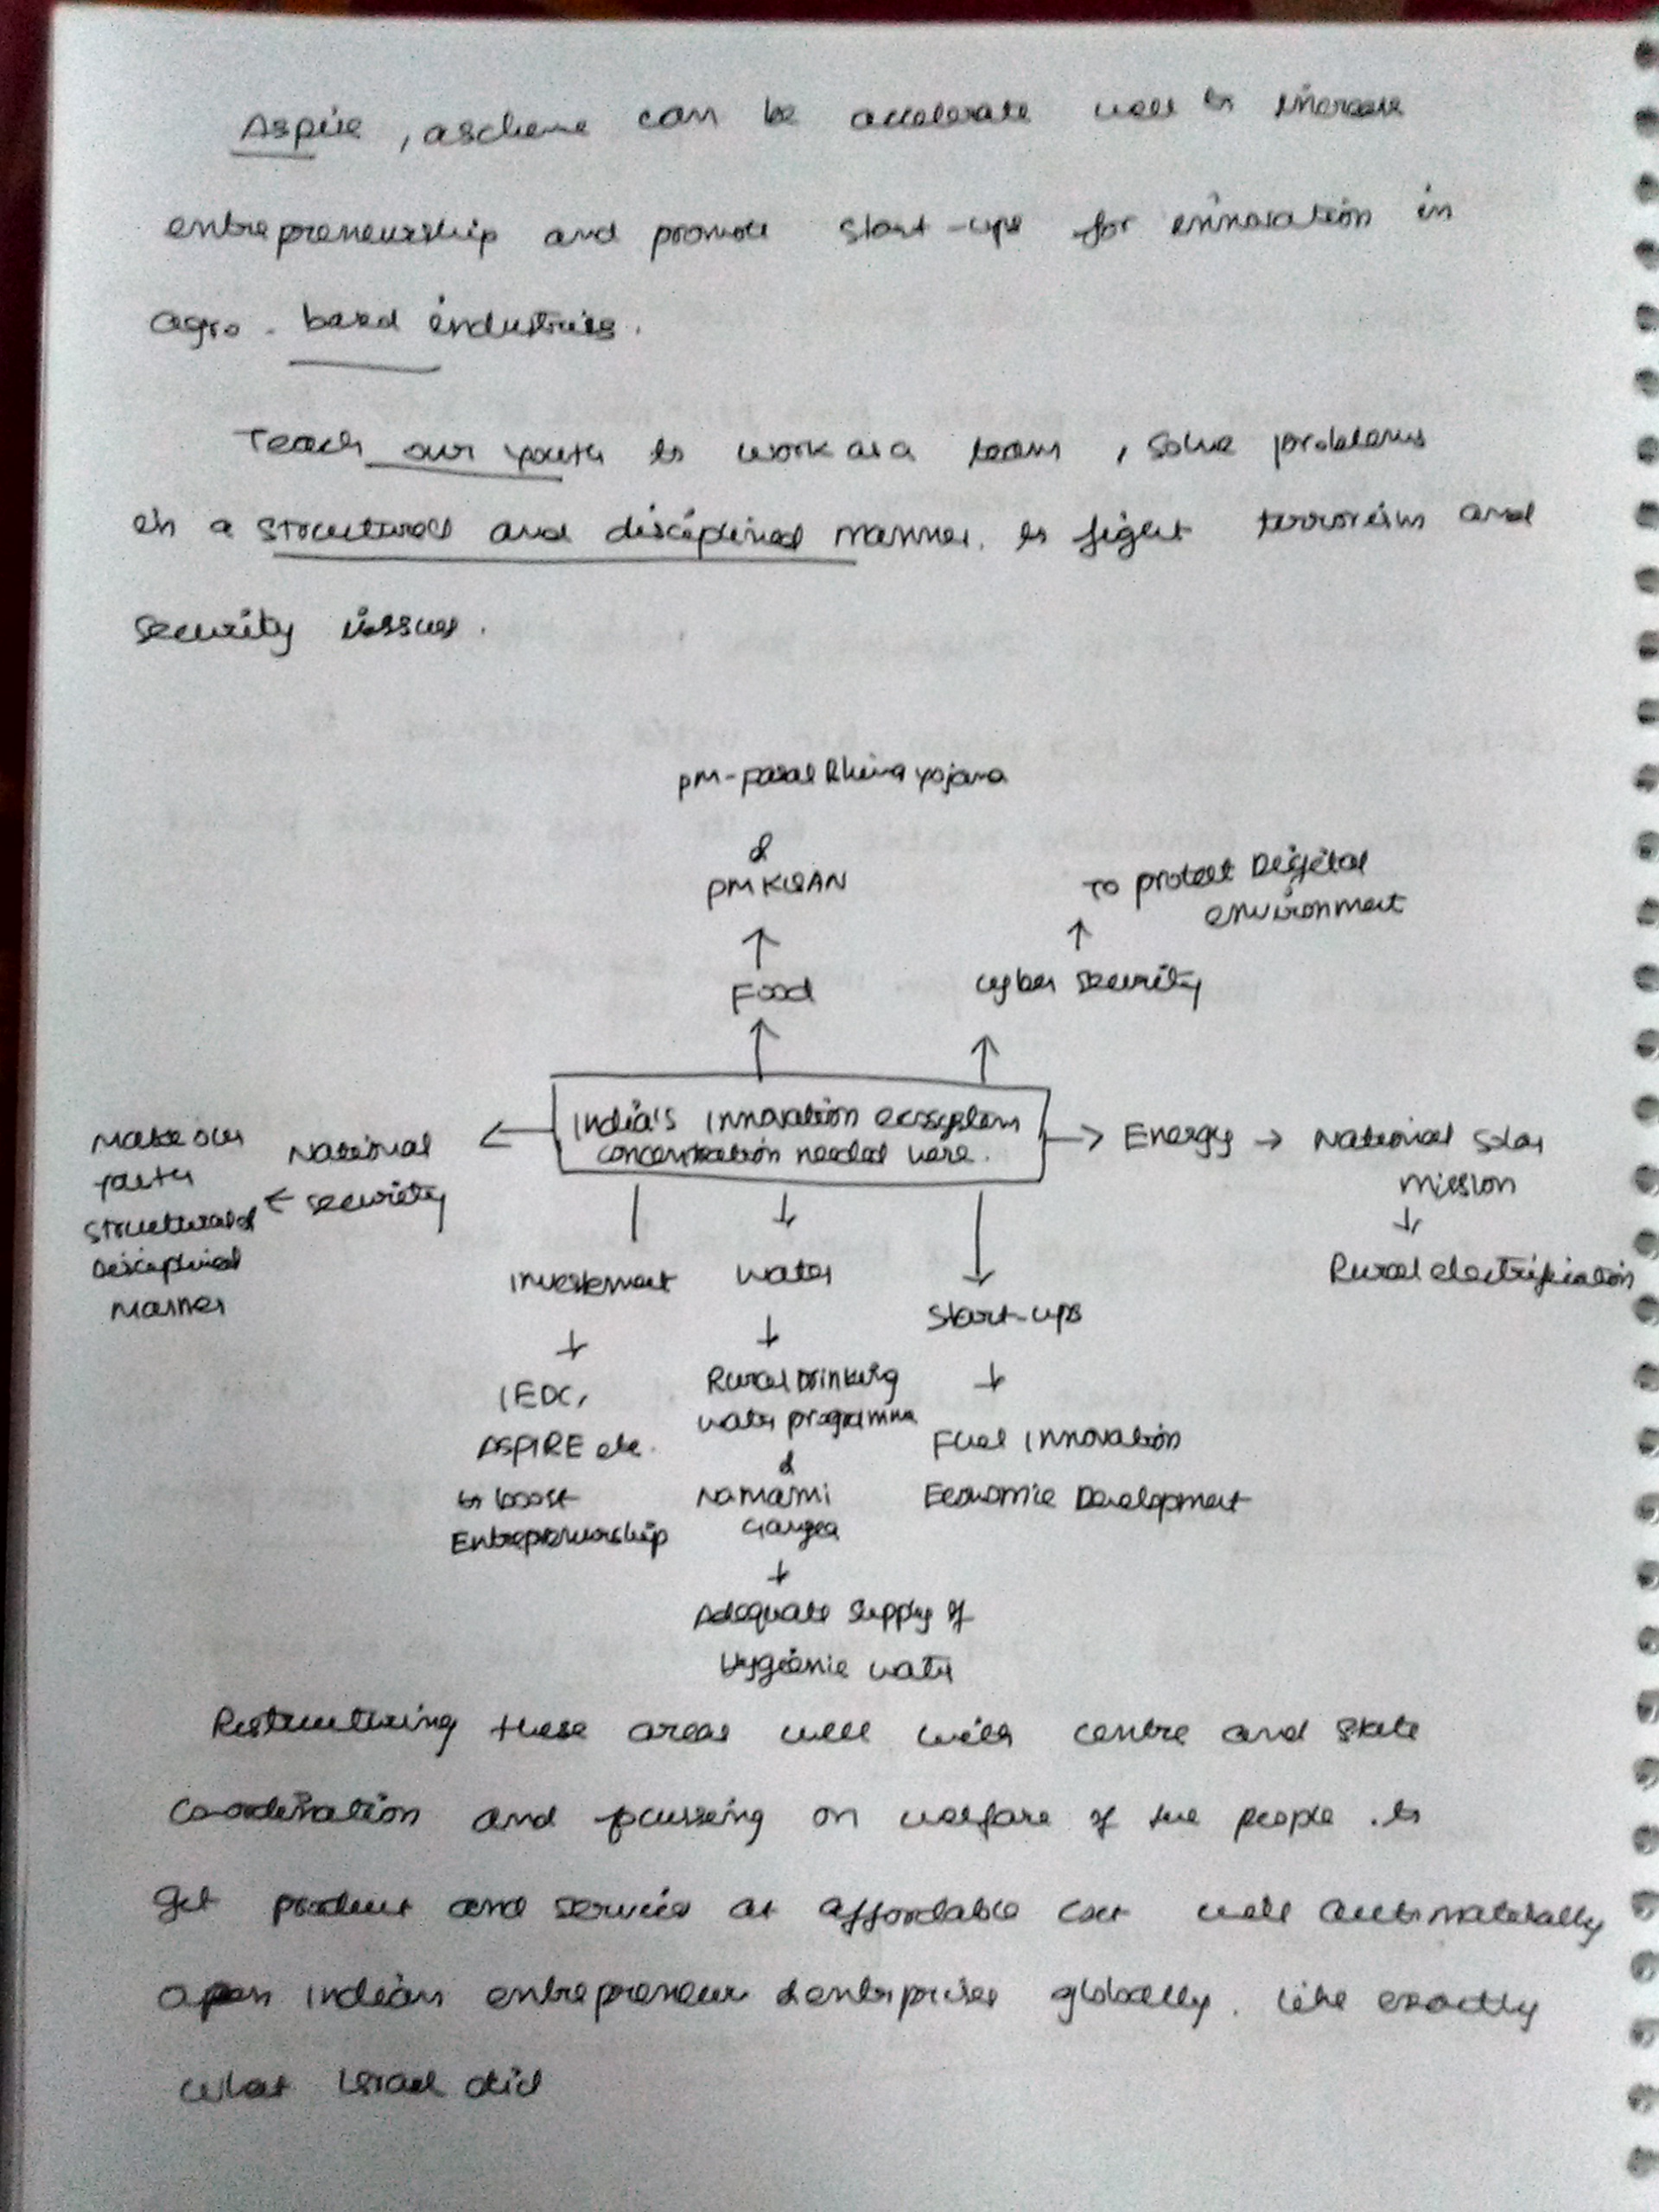 Aspire, a scheme can be accelerate well to increase
entrepreneurship and promote start-ups for innovation in
agro - based industries.
Teach our youth to work as a team, solve problems
in a structured and disciplined manner. to fight terrorism and
security issues.
PM-Fasal Bhima yojana
&
PM KISAN
Food
To protect Digital
environment
cyber security
India's Innovation ecosystem
concentration needed here.
Energy → National Solar
Mission
Rural electrification
National
security
Make our
youth
structured
Disciplined
Manner
Investement
IEDC,
ASPIRE etc.
to boost
Entrepreneurship
Water
Rural Drinking
water programme
&
Namami
Gangea
Adequate supply of
Hygienic water
Start-ups
Fuel Innovation
Economic Development
Restructuring these areas well with centre and state
co-ordination and focussing on welfare of the people. to
get product and service at affordable cost will automatically
open Indian entrepreneur & enterprises globally. like exactly
what Israel did